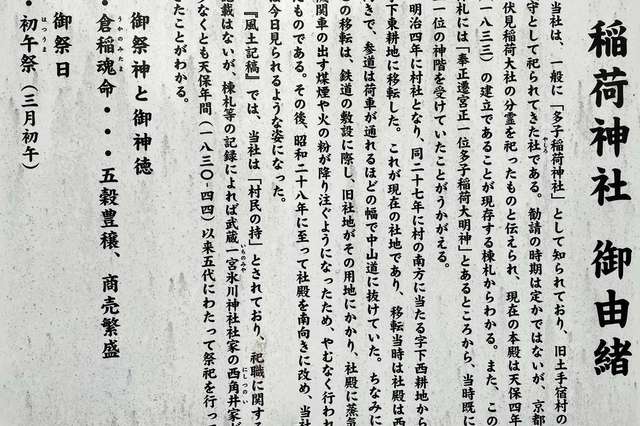 稲荷神社 御由緒
当社は、一般に「多子稲荷神社」として知られており、旧土手宿村の
守として祀られてきた社である。勧請の時期は定かではないが、京都
伏見稲荷大社の分霊を祀ったものと伝えられ、現在の本殿は天保四年
(一八三三)の建立であることが現存する棟札からわかる。また、この
札には「奉正遷宮正一位多子稲荷大明神」とあるところから、当時既に
一位の神階を受けていたことがうかがえる。
明治四年に村社となり、同二十七年に村の南方に当たる字下西耕地から
下東耕地に移転した。これが現在の社地であり、移転当時は社殿は西
きで、参道は荷車が通れるほどの幅で中山道に抜けていた。ちなみに
の移転は、鉄道の敷設に際し、旧社地がその用地にかかり、社殿に蒸気
関車の出す煤煙や火の粉が降り注ぐようになったため、やむなく行われ
ものである。その後、昭和二十八年に至って社殿を南向きに改め、当社
今日見られるような姿になった。
『風土記稿』では、当社は「村民の持」とされており、祀職に関する
載はないが、棟札等の記録によれば武蔵一宮氷川神社社家の西角井家が
なくとも天保年間(一八三〇-四四)以来五代にわたって祭祀を行っ
たことがわかる。
御祭神と御神徳
・倉稲魂命・・・五穀豊穣、商売繁盛
御祭日
・初午祭(三月初午)